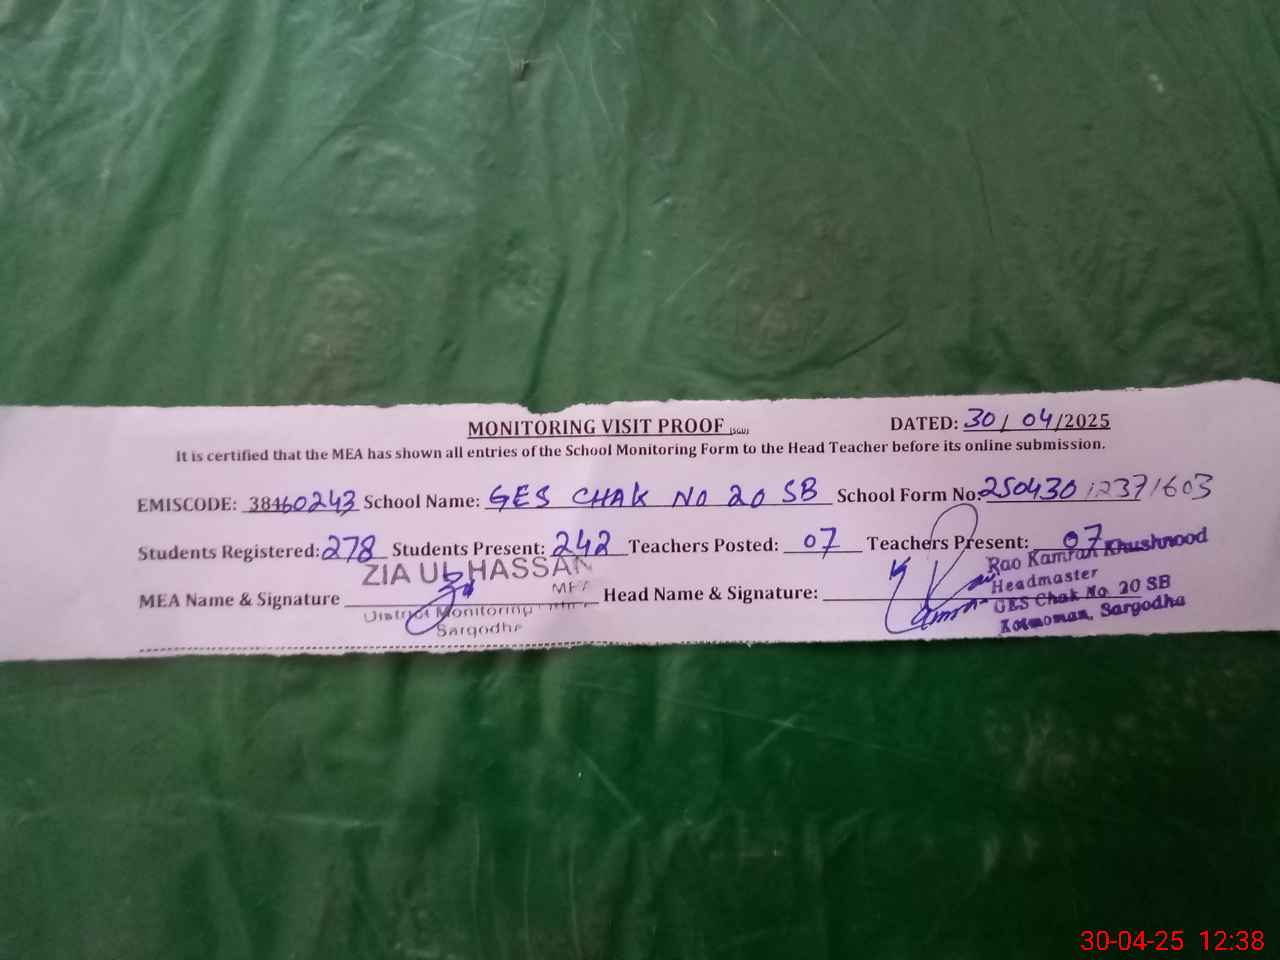 MONITORING VISIT PROOF (SGU) DATED: 30/04/2025
It is certified that the MEA has shown all entries of the School Monitoring Form to the Head Teacher before its online submission.
EMISCODE: 38460243 School Name: GES CHAK NO 20 SB School Form No: 25043012371603
Students Registered: 278 Students Present: 242 Teachers Posted: 07 Teachers Present: 07
ZIA UL HASSAN
MEA
MEA Name & Signature Head Name & Signature:
District Monitoring
Sargodha
Rao Kamran Khushnood
Headmaster
GES Chak No. 20 SB
Kotmoman, Sargodha
30-04-25 12:38